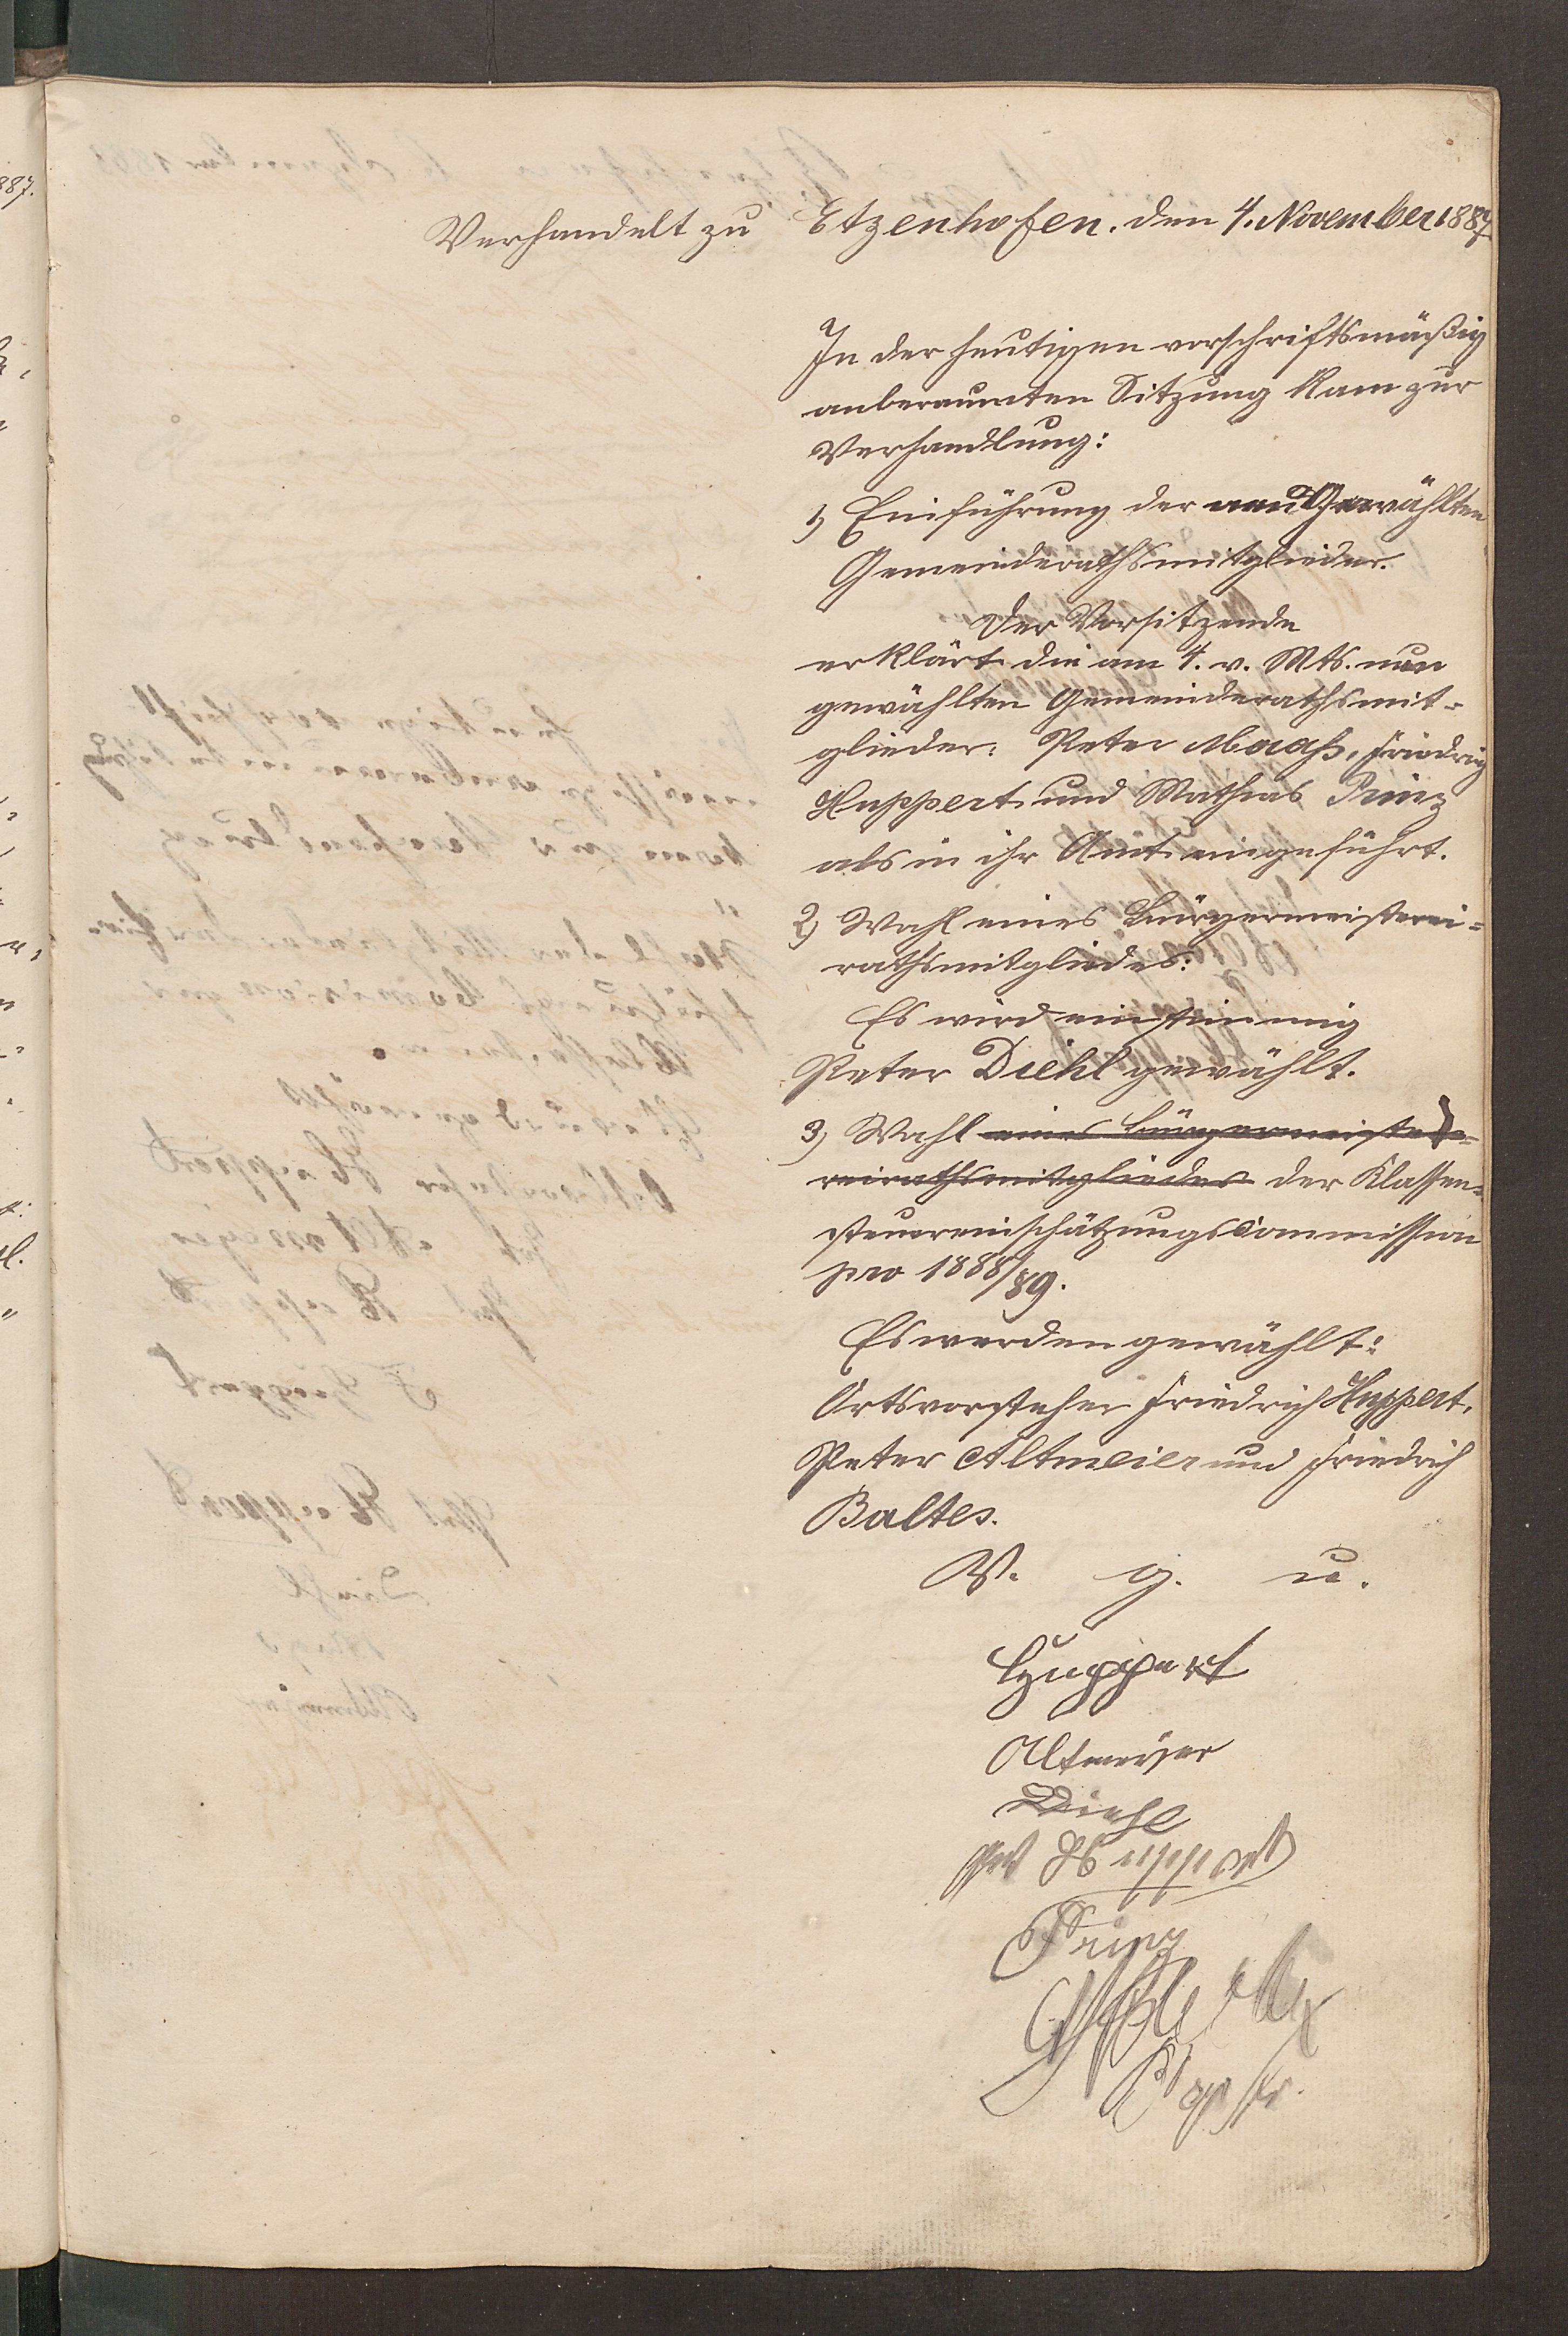 Verhandelt zu Etzenhofen, den 4. November 1887.
In der heutigen vorschriftsmäßig
anberaumten Sitzung kam zur
Verhandlung:
1) Einführung der neu Gewählten
Gemeinderathsmitglieder.
Der Vorsitzende
erklärt die am 4. v. Mts. neu
gewählten Gemeinderathsmit-
glieder: Peter Maaß, Friedrich
Huppert und Mathias Prinz
als in ihr Amt eingeführt.
2) Wahl eines Bürgermeisterei-
rathsmitgliedes:
Es wird einstimmig
Peter Diehl gewählt.
3) Wahl eines Bürgermeiste-
reirathsmitgliedes der Klassen-
steuereinschätzungscommission
pro 1888/89.
Es werden gewählt:
Ortsvorsteher Friedrich Huppert,
Peter Altmeier und Friedrich
Baltes.
V. g. u.
Huppert
Altmeyer
Diehl
Huppert
Prinz